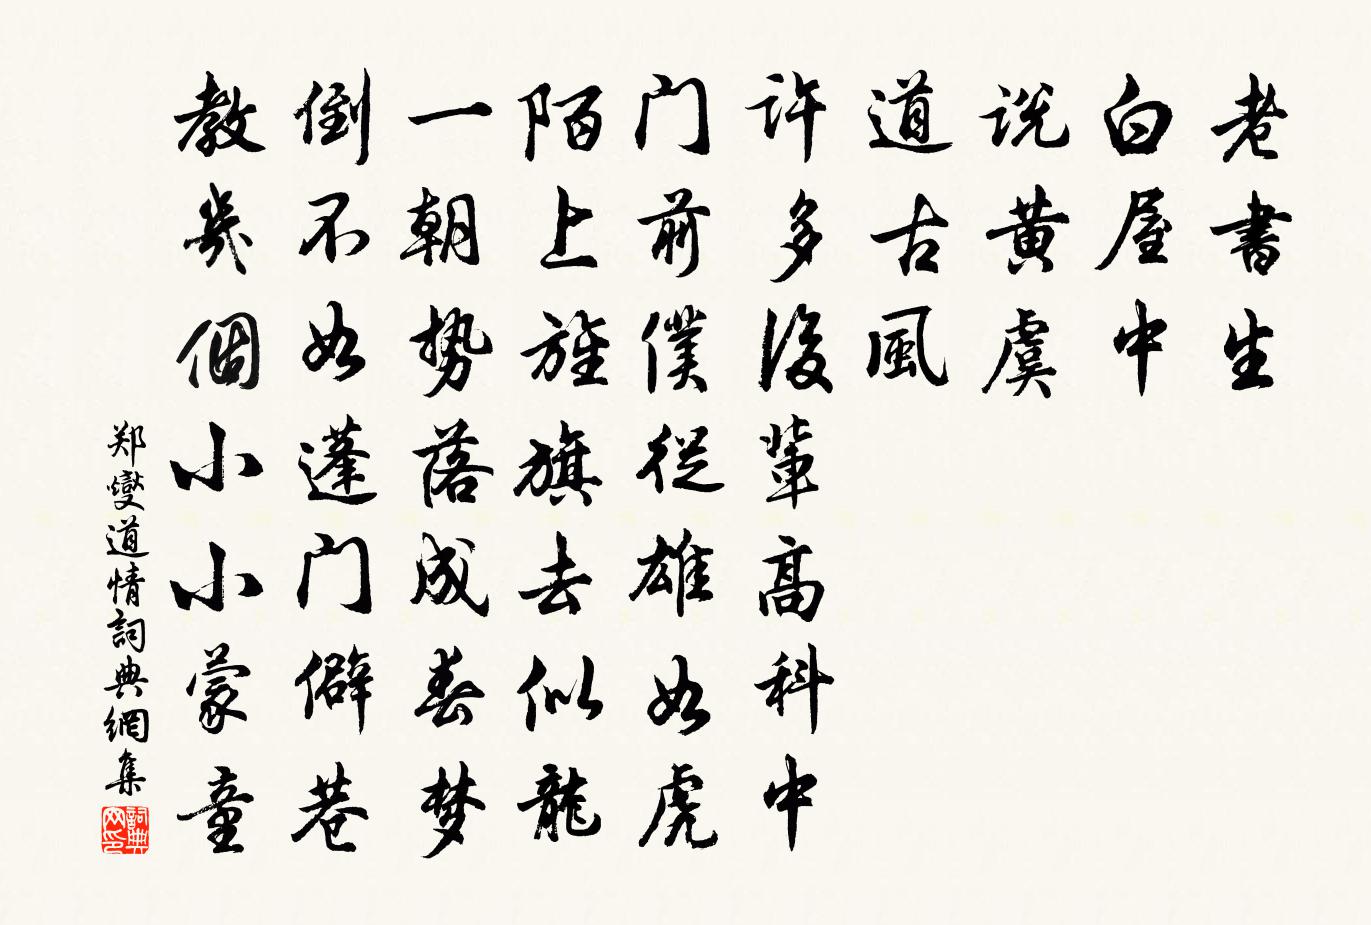 老書生
白屋中
说黄虞
道古風
许多後輩高科中
门前僕從雄如虎
陌上旌旗去似龍
一朝势落成春梦
倒不如蓬门僻巷
教幾個小小蒙童
郑燮道情詞典網集
詞典网印